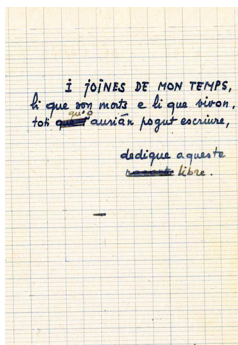 I JOINES DE MON TEMPS,
li que son morts e li que vivon,
toti qu'o aurián pogut escriure,
dedique aqueste
libre.